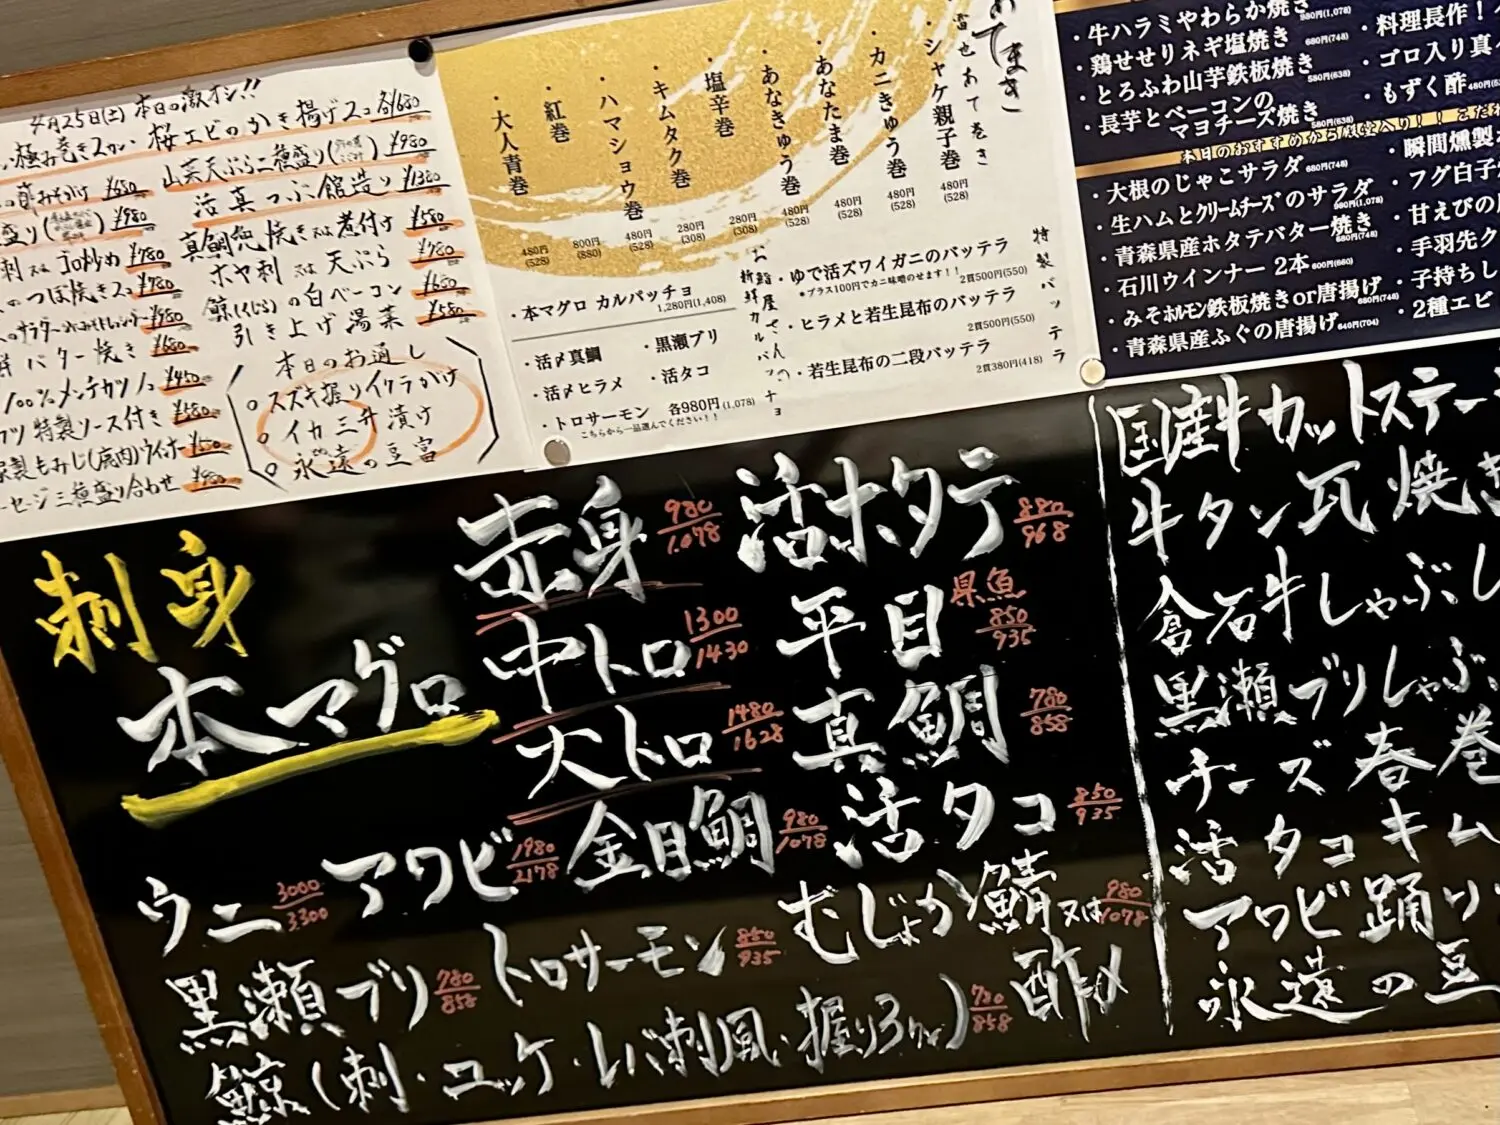 4月25日(土)本日の激オシ!!
桜エビのかき揚げ ¥680
山菜天ぷら二種盛り ¥980
活真つぶ舘造り ¥1380
焼き又は煮付け ¥580
ホヤ刺又は天ぷら ¥780
鯨(くじら)の白ベーコン ¥680
引き上げ湯葉 ¥580
バター焼き ¥680
特製ソース付き ¥580
本日のお通し
スズキ握りイクラがけ
イカ三升漬け
永遠の豆富
あてまき
・シャケ親子巻 480円(528)
・カニきゅう巻 480円(528)
・あなたま巻 480円(528)
・あなきゅう巻 480円(528)
・塩辛巻 280円(308)
・キムタク巻 280円(308)
・ハマショウ巻 480円(528)
・紅巻 800円(880)
・大人青巻 480円(528)
・本マグロ カルパッチョ
1,280円(1,408)
・活〆真鯛 ・黒瀬ブリ
・活〆ヒラメ ・活タコ
・トロサーモン 各980円(1,078)
こちらから一品選んでください!!
特製バッテラ
・ゆで活ズワイガニのバッテラ
*プラス100円でカニ味噌のせます!! 2貫500円(550)
・ヒラメと若生昆布のバッテラ
2貫500円(550)
・若生昆布の二段バッテラ
2貫380円(418)
・牛ハラミやわらか焼き 980円(1,078)
・鶏せせりネギ塩焼き 680円(748)
・とろふわ山芋鉄板焼き 580円(638)
・長芋とベーコンの
マヨチーズ焼き 580円(638)
・料理長作!
・ゴロ入り真
・もずく酢 480円
・大根のじゃこサラダ 680円(748)
・生ハムとクリームチーズのサラダ 980円(1,078)
・青森県産ホタテバター焼き 680円(748)
・石川ウインナー 2本 600円(660)
・みそホルモン鉄板焼きor唐揚げ 680円(748)
・青森県産ふぐの唐揚げ 640円(704)
・瞬間燻製
・フグ白子
・甘えびの
・手羽先
・子持ちし
・2種エビ
刺身
本マグロ
赤身 980 1078
中トロ 1300 1430
大トロ 1480 1628
活ホタテ 880 968
平目 県魚 850 935
真鯛 780 858
ウニ 3000 3300
アワビ 1980 2178
金目鯛 980 1078
活タコ 850 935
黒瀬ブリ 780 858
トロサーモン 850 935
むじょか鯖又は 980 1078
酢〆
鯨(刺・ユッケ・レバ刺風・握り3ケ) 780 858
国産牛カットステー
牛タン瓦焼き
倉石牛しゃぶし
黒瀬ブリしゃぶ
チーズ春巻
活タコキム
アワビ踊り
永遠の豆